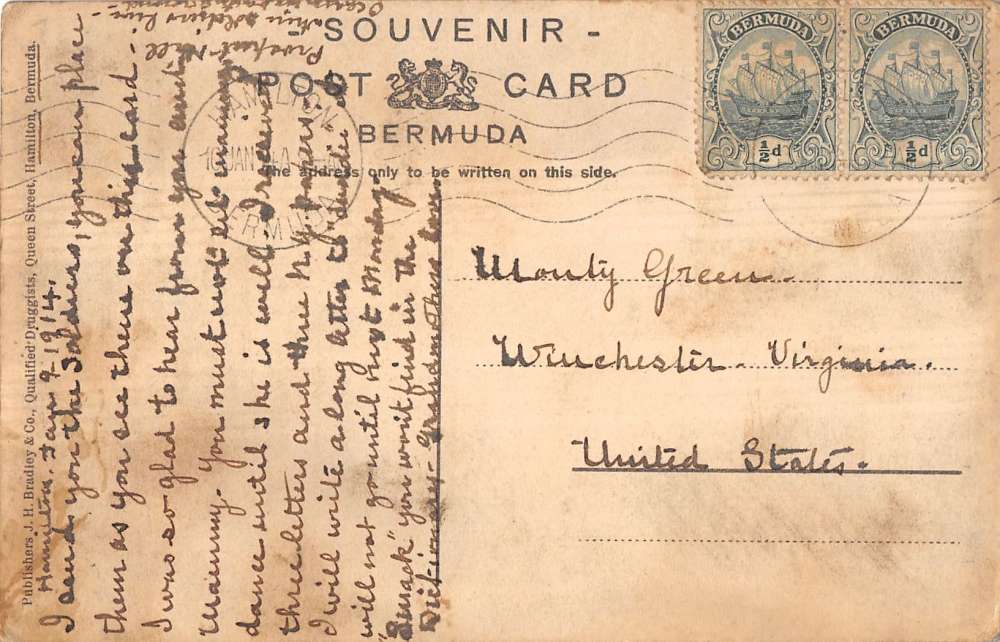 - SOUVENIR -
POST CARD
BERMUDA
The address only to be written on this side.
BERMUDA
½d
BERMUDA
½d
HAMILTON
JAN
BERMUDA
Publishers J. H. Bradley & Co., Qualified Druggists, Queen Street, Hamilton, Bermuda.
Hamilton. Jan 9-1914.
I send you the Soldiers, you can place
them as you see them on this card.
I was so glad to hear from you and
Mammy. You must not ab
dance until she is well. I received
three letters and three N.Y. papers.
I will write a long letter to "Sudie"
will not go until next Monday
" you wont find in the
Dictionary. Grandmothers love.
Prospect Hill
soldiers live
Ocean
Monty Green.
Winchester. Virginia.
United States.